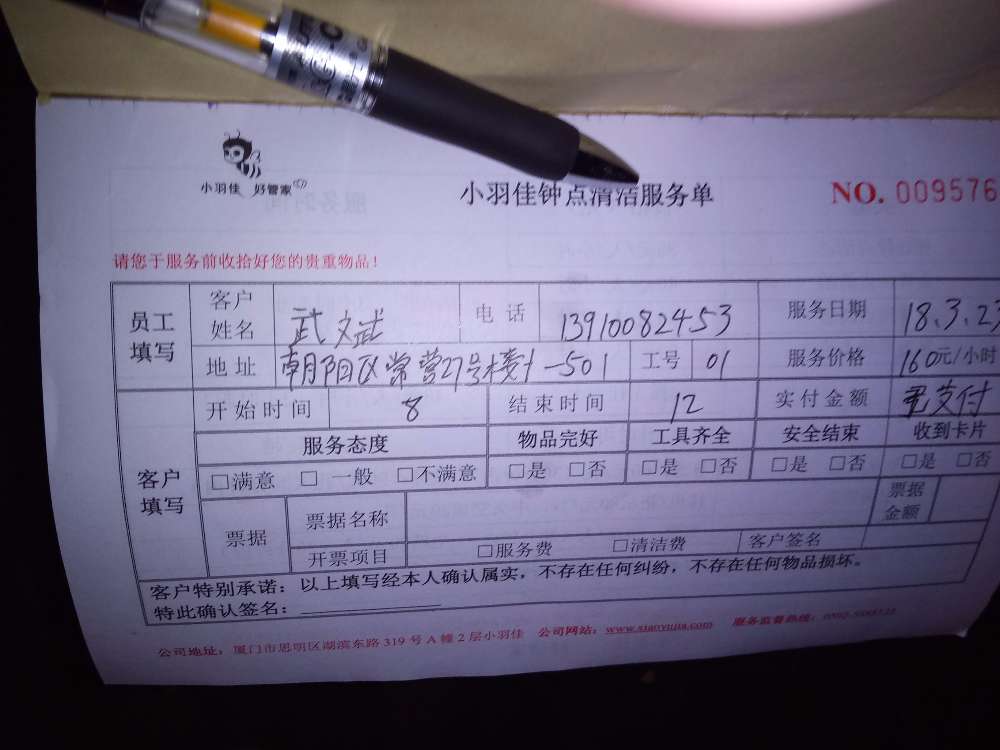 小羽佳 好管家
小羽佳钟点清洁服务单
NO. 009576
请您于服务前收拾好您的贵重物品！
员工填写 客户姓名 武文斌 电话 13910082453 服务日期 18.3.23
地址 朝阳区常营27号楼 1-501 工号 01 服务价格 160元/小时
客户填写 开始时间 8 结束时间 12 实付金额 支付
服务态度 物品完好 工具齐全 安全结束 收到卡片
□满意 □一般 □不满意 □是 □否 □是 □否 □是 □否 □是 □否
票据 票据名称 票据金额
开票项目 □服务费 □清洁费 客户签名
客户特别承诺：以上填写经本人确认属实，不存在任何纠纷，不存在任何物品损坏。
特此确认签名：
公司地址：厦门市思明区湖滨东路 319 号 A 幢 2 层小羽佳 公司网站：www.xiaoyujia.com 服务监督热线：